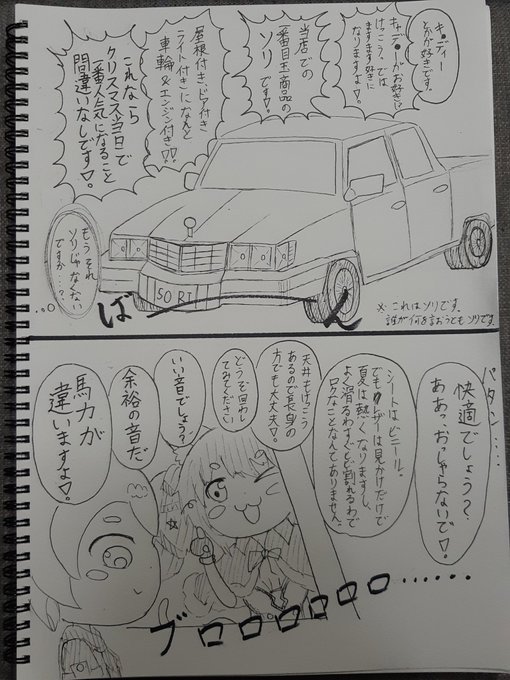 キ●ディー
とかが好きです。
キャデ●ーがお好き!?
けっこう、では
ますます好きに
なりますよ♡。
当店での
一番目玉商品の
ソリです♡。
屋根付き、ドア付き
ライト付きになんと
車輪&エンジン付き♡♡。
これなら
クリスマス当日で
一番人気になること
間違いなしです♡。
もうそれ
ソリじゃなくない
ですか…?
SORI
ばーーん
※これはソリです。
誰が何を言おうともソリです。
バタン…
快適でしょう?
ああっおっしゃらないで♡。
シートはビニール。
でもレザーは見かけだけで
夏は熱くなりますし、
よく滑るわすぐひび割れるわで
ロクなことなんてありません。
天井もけっこう
あるので長身の
方でも大丈夫♡。
どうぞ回わし
てみてください
いい音でしょう?
余裕の音だ
馬力が
違いますよ♡。
ブロロロロロロ……